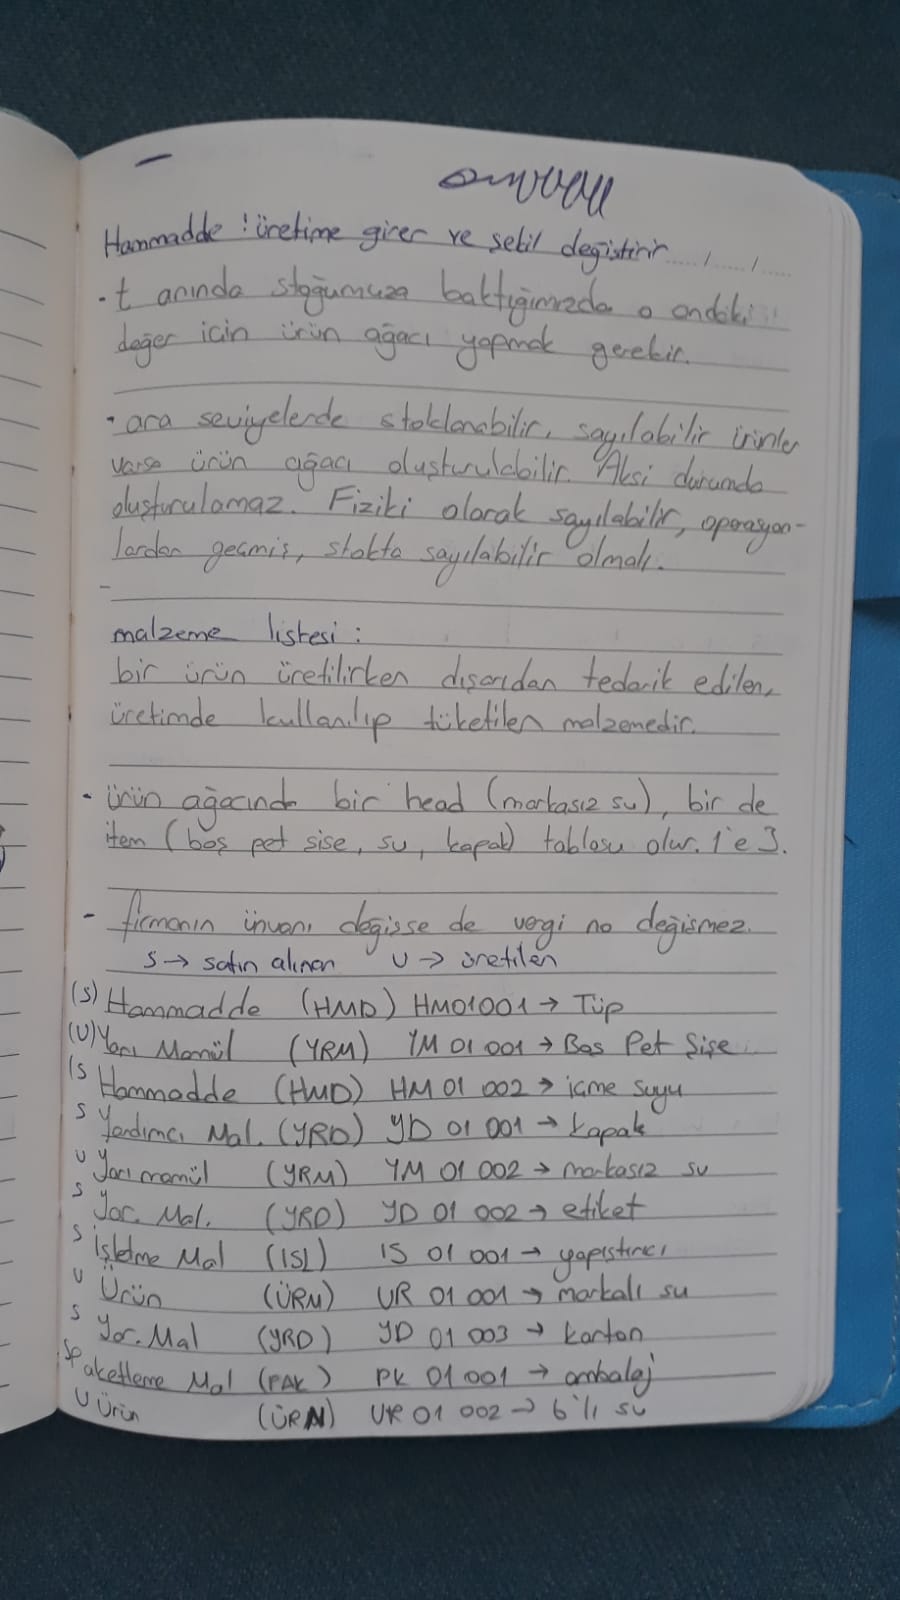 Hammadde : üretime girer ve şekil değiştirir...../...../.....
• t anında stoğumuza baktığımızda o andaki
değer için ürün ağacı yapmak gerekir.
• ara seviyelerde stoklanabilir, sayılabilir ürünler
varsa ürün ağacı oluşturulabilir. Aksi durumda
oluşturulamaz. Fiziki olarak sayılabilir, operasyon-
lardan geçmiş, stokta sayılabilir olmalı.
-
malzeme listesi :
bir ürün üretilirken dışarıdan tedarik edilen,
üretimde kullanılıp tüketilen malzemedir.
• ürün ağacında bir head (markasız su), bir de
item (boş pet şişe, su, kapak) tablosu olur. 1'e 3.
- firmanın ünvanı değişse de vergi no değişmez.
S → satın alınan U → üretilen
(S) Hammadde (HMD) HM01001 → Tüp
(U) Yarı Mamül (YRM) YM 01 001 → Boş Pet Şişe
(S Hammadde (HMD) HM 01 002 → içme suyu
S Yardımcı Mal. (YRD) YD 01 001 → kapak
U Yarı mamül (YRM) YM 01 002 → markasız su
S Yar. Mal. (YRD) YD 01 002 → etiket
S İşletme Mal (ISL) IS 01 001 → yapıştırıcı
U Ürün (ÜRN) UR 01 001 → markalı su
S Yar. Mal (YRD) YD 01 003 → karton
S Paketleme Mal (PAK) PK 01 001 → ambalaj
U Ürün (ÜRN) UR 01 002 → 6'lı su